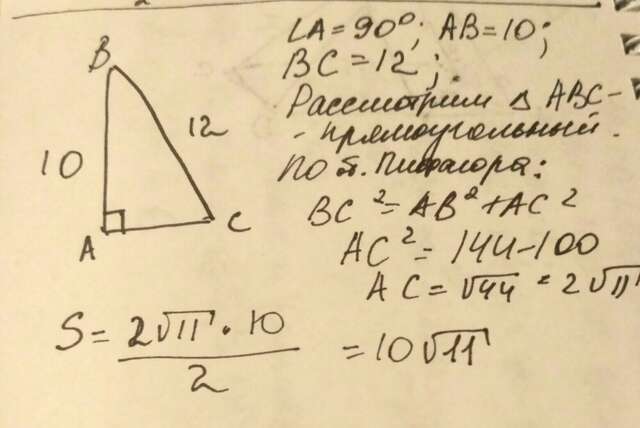 ∠A=90°; AB=10;
BC=12;
Рассмотрим △ ABC-
- прямоугольный.
По т. Пифагора:
BC²=AB²+AC²
AC²=144-100
AC=√44=2√11
B
12
10
A
C
S=2√11·10/2=10√11